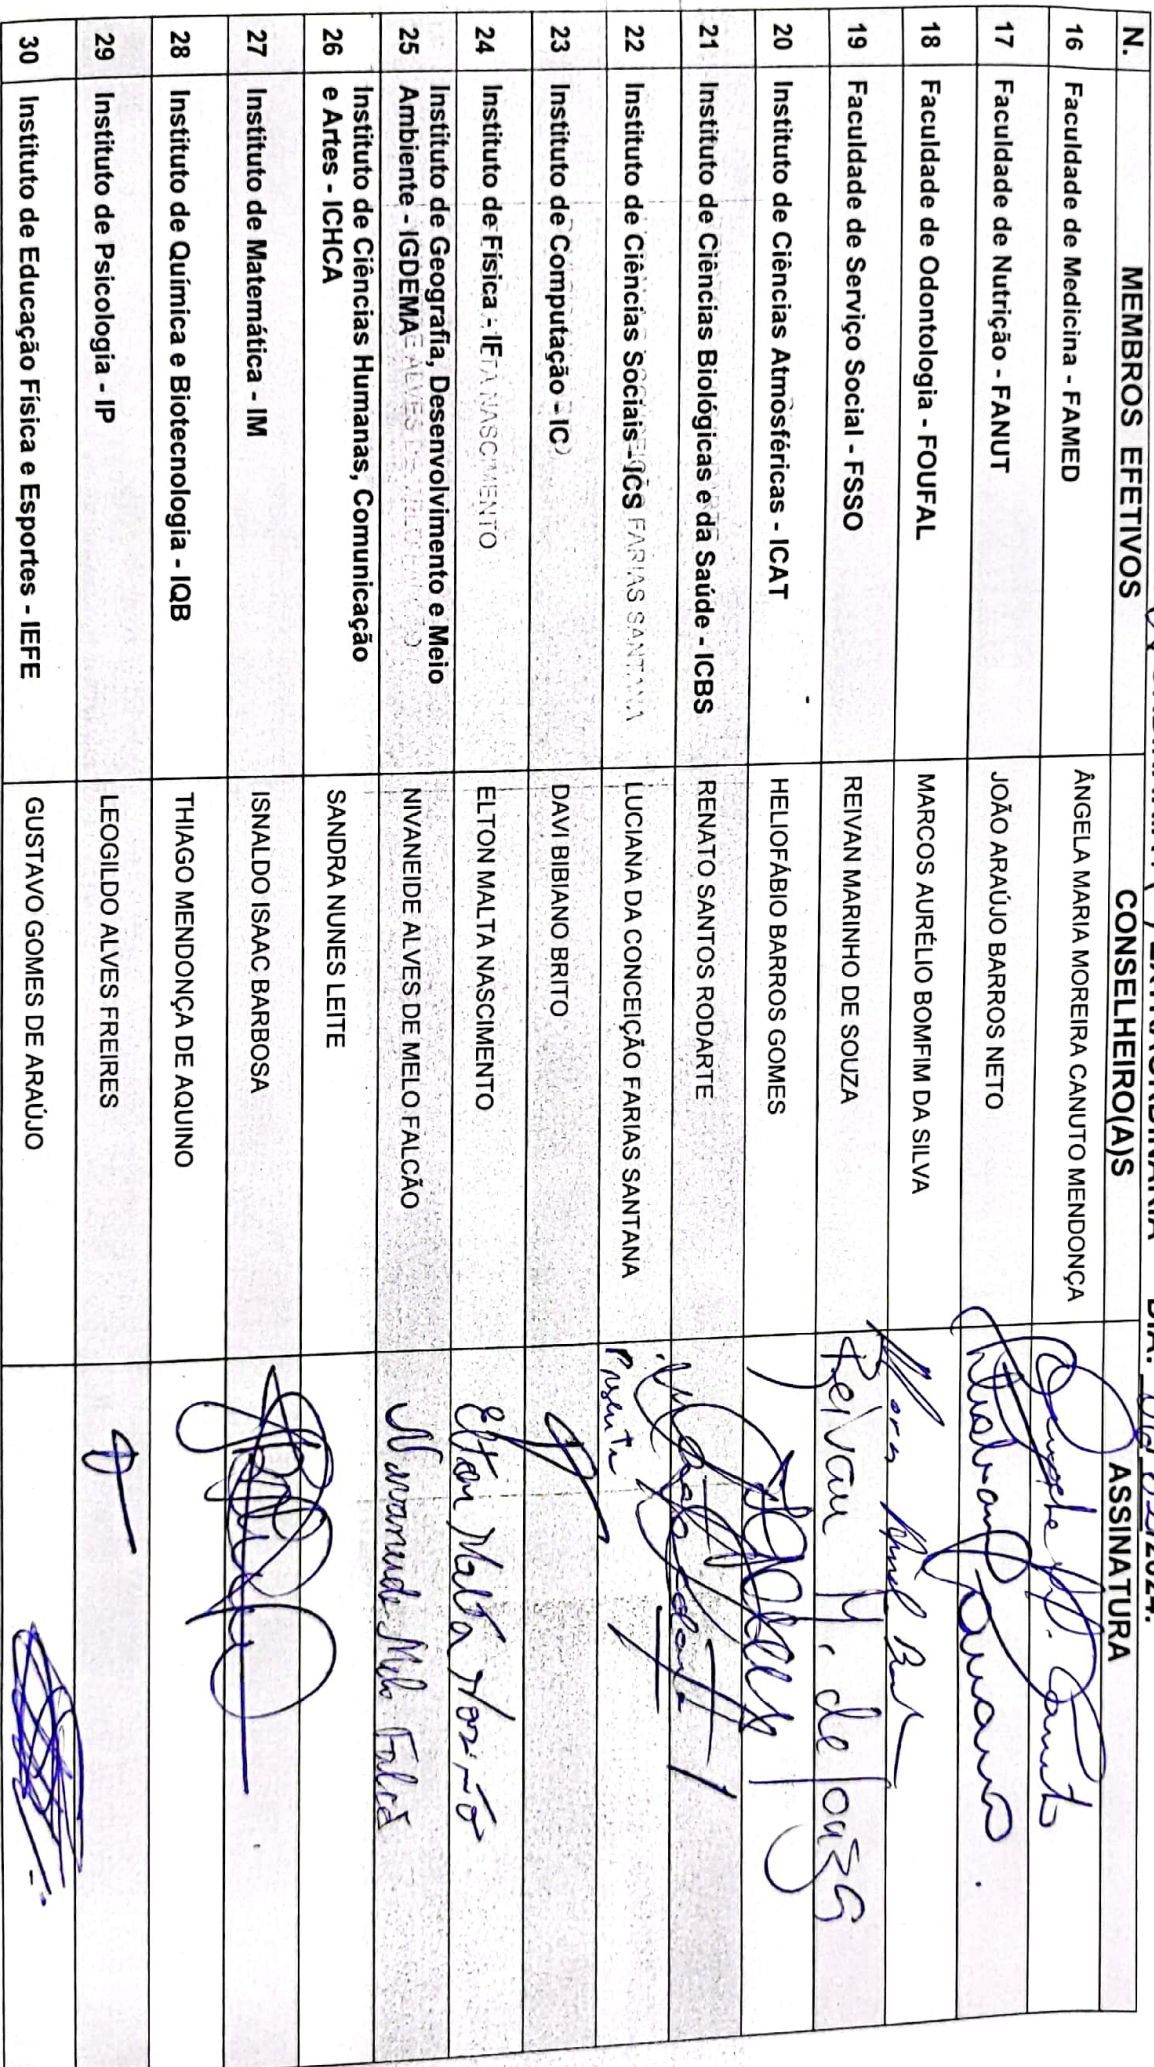 EXTRAORDINÁRIA DIA: 2024.
N. MEMBROS EFETIVOS CONSELHEIRO(A)S ASSINATURA
16 Faculdade de Medicina - FAMED ÂNGELA MARIA MOREIRA CANUTO MENDONÇA
17 Faculdade de Nutrição - FANUT JOÃO ARAÚJO BARROS NETO
18 Faculdade de Odontologia - FOUFAL MARCOS AURÉLIO BOMFIM DA SILVA
19 Faculdade de Serviço Social - FSSO REIVAN MARINHO DE SOUZA Reivan M. de Souza
20 Instituto de Ciências Atmosféricas - ICAT HELIOFÁBIO BARROS GOMES
21 Instituto de Ciências Biológicas e da Saúde - ICBS RENATO SANTOS RODARTE
22 Instituto de Ciências Sociais - ICS FARIAS SANTANA LUCIANA DA CONCEIÇÃO FARIAS SANTANA Presente
23 Instituto de Computação - IC DAVI BIBIANO BRITO
24 Instituto de Física - IF NASCIMENTO ELTON MALTA NASCIMENTO Elton Malta
25 Instituto de Geografia, Desenvolvimento e Meio
Ambiente - IGDEMA NIVANEIDE ALVES DE MELO FALCÃO Nivaneide Melo Falcã
26 Instituto de Ciências Humanas, Comunicação
e Artes - ICHCA SANDRA NUNES LEITE
27 Instituto de Matemática - IM ISNALDO ISAAC BARBOSA
28 Instituto de Química e Biotecnologia - IQB THIAGO MENDONÇA DE AQUINO
29 Instituto de Psicologia - IP LEOGILDO ALVES FREIRES
30 Instituto de Educação Física e Esportes - IEFE GUSTAVO GOMES DE ARAÚJO